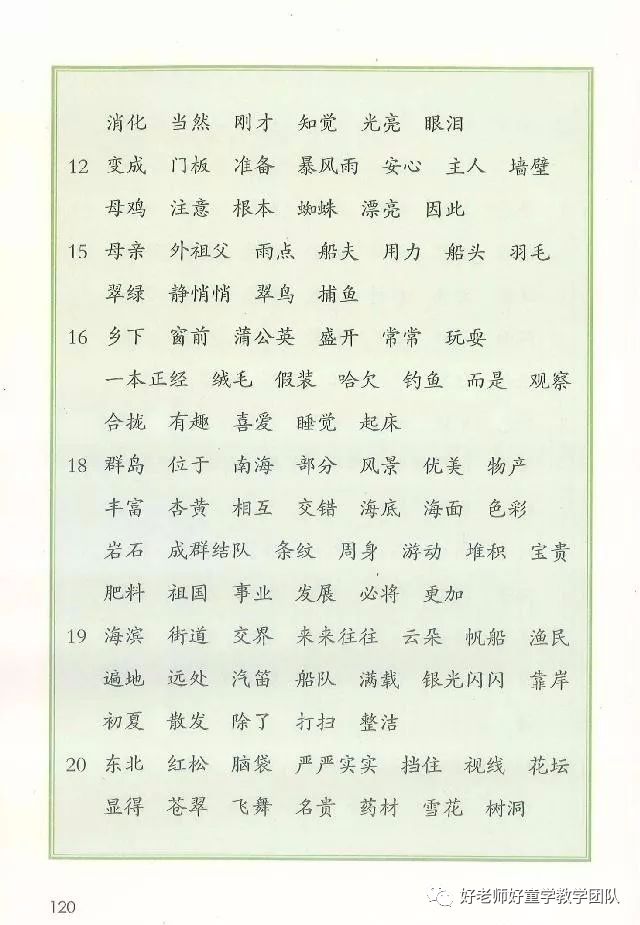 消化 当然 刚才 知觉 光亮 眼泪
12 变成 门板 准备 暴风雨 安心 主人 墙壁
母鸡 注意 根本 蜘蛛 漂亮 因此
15 母亲 外祖父 雨点 船夫 用力 船头 羽毛
翠绿 静悄悄 翠鸟 捕鱼
16 乡下 窗前 蒲公英 盛开 常常 玩耍
一本正经 绒毛 假装 哈欠 钓鱼 而是 观察
合拢 有趣 喜爱 睡觉 起床
18 群岛 位于 南海 部分 风景 优美 物产
丰富 杏黄 相互 交错 海底 海面 色彩
岩石 成群结队 条纹 周身 游动 堆积 宝贵
肥料 祖国 事业 发展 必将 更加
19 海滨 街道 交界 来来往往 云朵 帆船 渔民
遍地 远处 汽笛 船队 满载 银光闪闪 靠岸
初夏 散发 除了 打扫 整洁
20 东北 红松 脑袋 严严实实 挡住 视线 花坛
显得 苍翠 飞舞 名贵 药材 雪花 树洞
120
好老师好童学教学团队